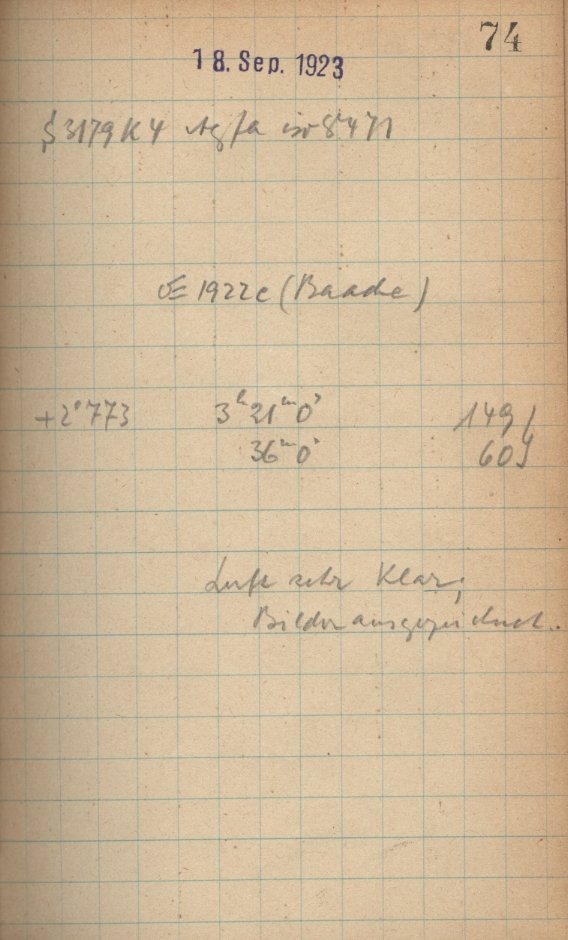 74
18. Sep. 1923
S 3179 K4 Agfa iso 8471
1922c (Baade)
+2°773 3ʰ21ᵐ0ˢ 149
36ᵐ0ˢ 60
Luft sehr klar;
Bilder ausgezeichnet.